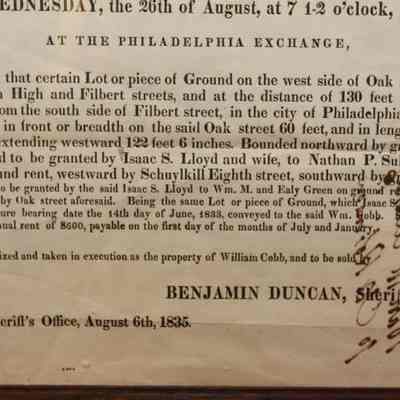 EDNESDAY, the 26th of August, at 7 1-2 o'clock,
AT THE PHILADELPHIA EXCHANGE,
that certain Lot or piece of Ground on the west side of Oak
High and Filbert streets, and at the distance of 130 feet
om the south side of Filbert street, in the city of Philadelphia
in front or breadth on the said Oak street 60 feet, and in leng
extending westward 122 feet 6 inches. Bounded northward by gr
d to be granted by Isaac S. Lloyd and wife, to Nathan P. Su
und rent, westward by Schuylkill Eighth street, southward by
to be granted by the said Isaac S. Lloyd to Wm. M. and Ealy Green on ground re
by Oak street aforesaid. Being the same Lot or piece of Ground, which Isaac S
ure bearing date the 14th day of June, 1833, conveyed to the said Wm. Cobb.
nual rent of $600, payable on the first day of the months of July and January
ized and taken in execution as the property of William Cobb, and to be sold by
BENJAMIN DUNCAN, Sheriff
eriff's Office, August 6th, 1835.